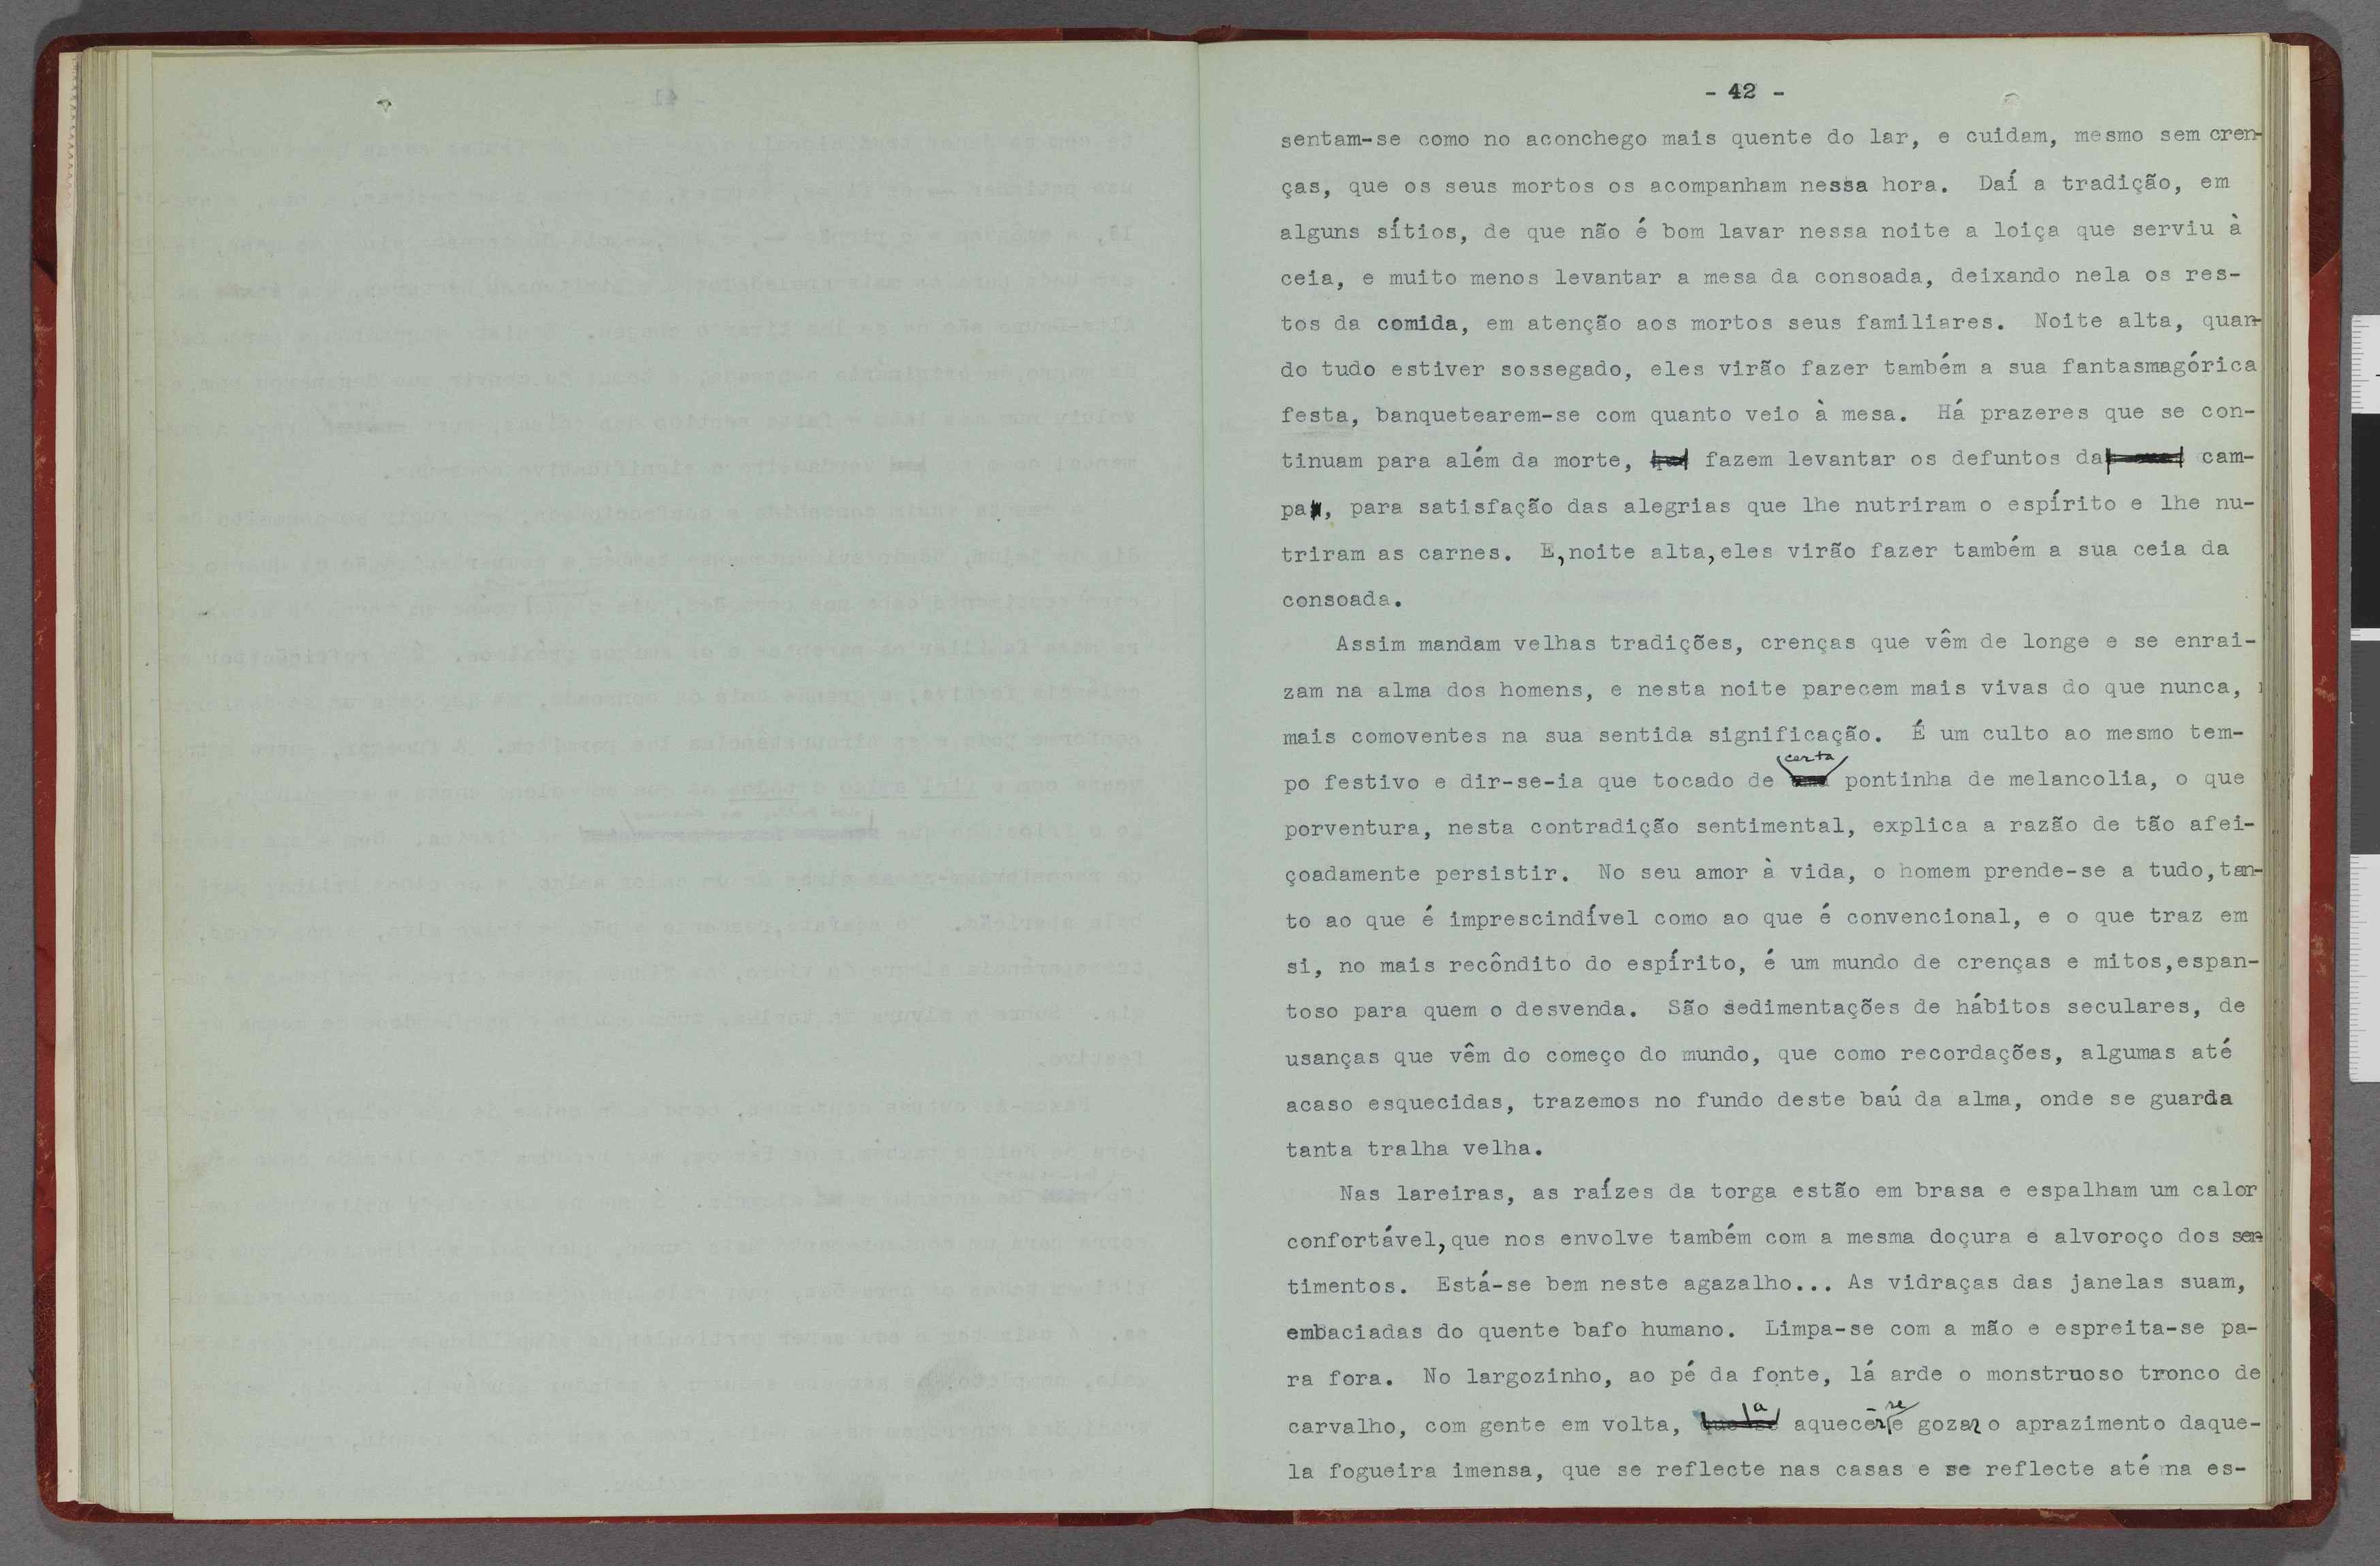 - 42 -
sentam-se como no aconchego mais quente do lar, e cuidam, mesmo sem cren-
ças, que os seus mortos os acompanham nessa hora. Daí a tradição, em
alguns sítios, de que não é bom lavar nessa noite a loiça que serviu à
ceia, e muito menos levantar a mesa da consoada, deixando nela os res-
tos da comida, em atenção aos mortos seus familiares. Noite alta, quan-
do tudo estiver sossegado, eles virão fazer também a sua fantasmagórica
festa, banquetearem-se com quanto veio à mesa. Há prazeres que se con-
tinuam para além da morte, fazem levantar os defuntos da cam-
pa, para satisfação das alegrias que lhe nutriram o espírito e lhe nu-
triram as carnes. E, noite alta, eles virão fazer também a sua ceia da
consoada.
Assim mandam velhas tradições, crenças que vêm de longe e se enrai-
zam na alma dos homens, e nesta noite parecem mais vivas do que nunca,
mais comoventes na sua sentida significação. É um culto ao mesmo tem-
po festivo e dir-se-ia que tocado de certa pontinha de melancolia, o que
porventura, nesta contradição sentimental, explica a razão de tão afei-
çoadamente persistir. No seu amor à vida, o homem prende-se a tudo, tan-
to ao que é imprescindível como ao que é convencional, e o que traz em
si, no mais recôndito do espírito, é um mundo de crenças e mitos, espan-
toso para quem o desvenda. São sedimentações de hábitos seculares, de
usanças que vêm do começo do mundo, que como recordações, algumas até
acaso esquecidas, trazemos no fundo deste baú da alma, onde se guarda
tanta tralha velha.
Nas lareiras, as raízes da torga estão em brasa e espalham um calor
confortável, que nos envolve também com a mesma doçura e alvoroço dos sen-
timentos. Está-se bem neste agazalho... As vidraças das janelas suam,
embaciadas do quente bafo humano. Limpa-se com a mão e espreita-se pa-
ra fora. No largozinho, ao pé da fonte, lá arde o monstruoso tronco de
carvalho, com gente em volta, a aquecer-se e gozar o aprazimento daque-
la fogueira imensa, que se reflecte nas casas e se reflecte até na es-